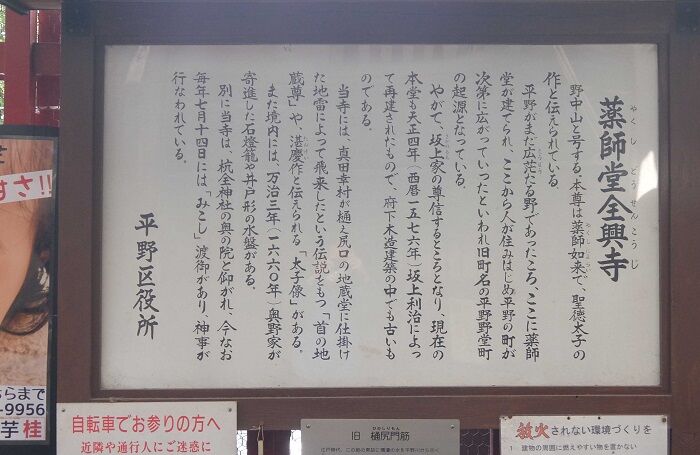 薬師堂全興寺
やくし どう せんこうじ
野中山と号する。本尊は薬師如来で、聖徳太子の
作と伝えられている。
平野がまだ広茫たる野であったころ、ここに薬師
堂が建てられ、ここから人が住みはじめ平野の町が
次第に広がっていったといわれ旧町名の平野野堂町
の起源となっている。
やがて、坂上家の尊信するところとなり、現在の
本堂も天正四年(西暦一五七六年)坂上利治によっ
て再建されたもので、府下木造建築の中でも古いも
のである。
当寺には、真田幸村が樋え尻口の地蔵堂に仕掛け
た地雷によって飛来したという伝説をもつ「首の地
蔵尊」や、湛慶作と伝えられる「太子像」がある。
また境内には、万治三年(一六六〇年)奥野家が
寄進した石燈籠や井戸形の水盤がある。
別に当寺は、杭全神社の奥の院と仰がれ、今なお
毎年七月十四日には「みこし」渡御があり、神事が
行なわれている。
平野区役所
すさ!!
らまで
-9956
芋桂
自転車でお参りの方へ
近隣や通行人にご迷惑に
ひのしりもん
旧 樋尻門筋
放火されない環境づくりを
1 建物の周囲に燃えやすい物を置かない